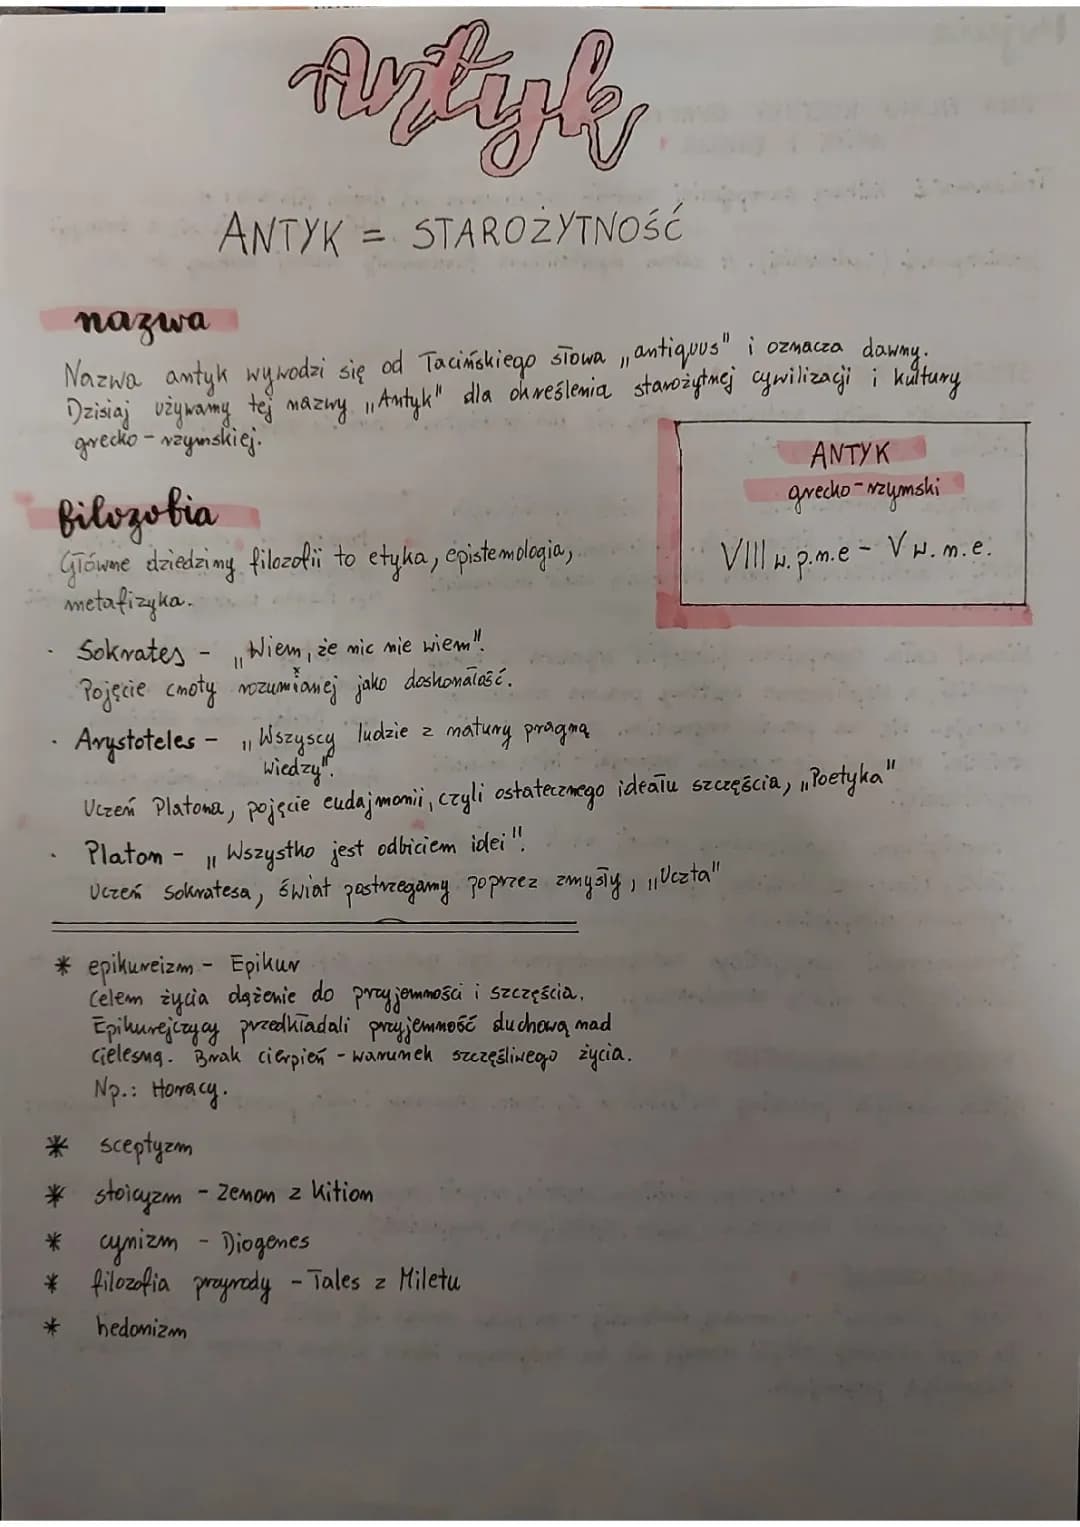 Antyk
ANTYK = STAROŻYTNOŚĆ
nazwa
Nazwa antyk wywodzi się od łacińskiego słowa „antiquus" i oznacza dawny.
Dzisiaj używamy tej nazwy „Antyk" dla określenia starożytnej cywilizacji i kultury
grecko-rzymskiej.
ANTYK
grecko-rzymski
VIII w.p.n.e - V w.n.e.
filozofia
Główne dziedziny filozofii to etyka, epistemologia,
metafizyka.
· Sokrates - „Wiem, że nic nie wiem".
Pojęcie cnoty rozumianej jako doskonałość.
· Arystoteles - „Wszyscy ludzie z natury pragną
wiedzy".
Uczeń Platona, pojęcie eudajmonii, czyli ostatecznego ideału szczęścia, „Poetyka"
· Platon - „Wszystko jest odbiciem idei".
Uczeń Sokratesa, świat postrzegamy poprzez zmysły, „Uczta"
* epikureizm - Epikur
Celem życia dążenie do przyjemności i szczęścia.
Epikurejczycy przedkładali przyjemność duchową nad
cielesną. Brak cierpień - warunek szczęśliwego życia.
Np.: Horacy.
* sceptyzm
* stoicyzm - Zenon z Kition
* cynizm - Diogenes
* filozofia przyrody - Tales z Miletu
* hedonizm